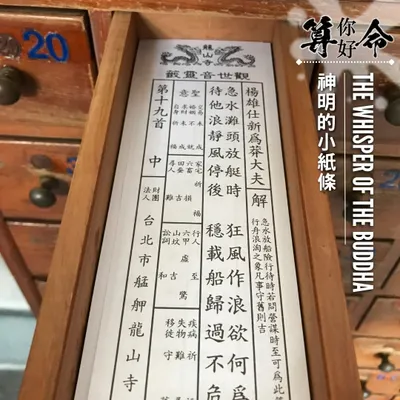 算你好命
神明的小紙條
THE WHISPER OF THE BUDDHA
20
龍山寺
觀世音靈籤
楊雄仕新為莽大夫 解
急水放船險行待時若問營謀時至可為此
行舟浪淘之象凡事守舊則吉
急水灘頭放艇時 狂風作浪欲何為
待他浪靜風停後 穩載船歸過不危
聖意
家宅祈福
行人至
六甲虛驚
山墳吉
訟詞和
疾病祈
失物難
移徙守
第十九首 中
財團法人 台北市艋舺龍山寺